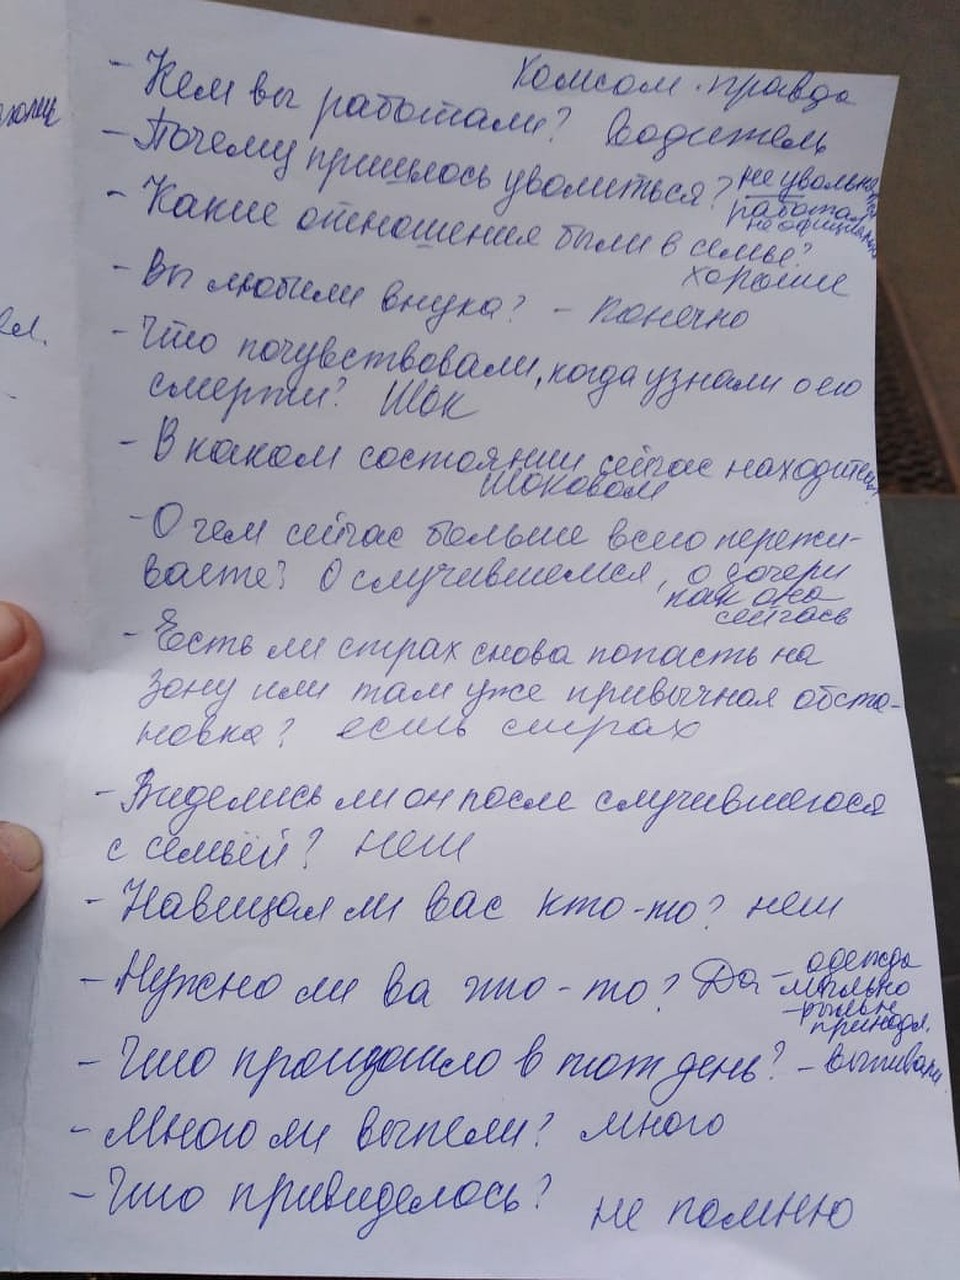 Комсом. правда
- Кем вы работали? Водитель
- Почему пришлось уволиться? не увольня
работа
неофициально
- Какие отношения были в семье?
хорошие
- Вы любили внука? - Конечно
- Что почувствовали, когда узнали о его
смерти? Шок
- В каком состоянии сейчас находитесь
шоковом
- О чем сейчас больше всего пережи-
ваете? О случившемся, о дочери
как она
сейчас
- Есть ли страх снова попасть на
зону или там уже привычная обста-
новка? есть страх
- Виделись ли он после случившегося
с семьёй? нет
- Навещал ли вас кто-то? нет
- Нужно ли ва что-то? Да - одежда
- мыльно
- рыльн
принадл.
- Что произошло в тот день? - выпивали
- Много ли выпели? много
- Что привиделось? не помню